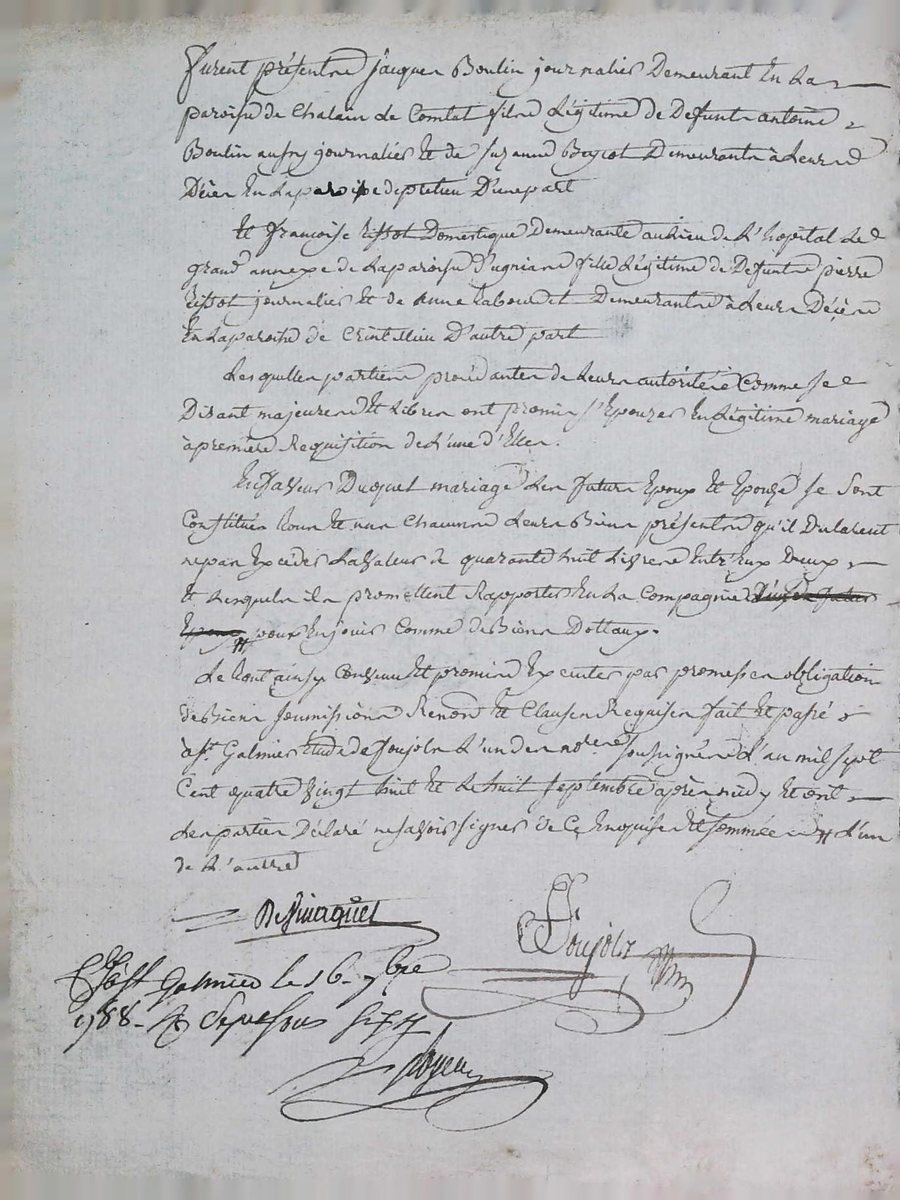 furent présents Jacques Boulin journalier Demeurant En La
paroisse de Chalain Le Comtal fils Légitime de Defunts antoine
Boulin aussy journalier Et de Suzanne Demeurants à Leurs
Décès En La paroisse de pretieu D'une part
Et francoise Rissot Domestique Demeurante au Lieu de L'hopital Le
grand annexe de La paroisse fille Légitime de Defunts pierre
Rissot journalier Et de Anne Demeurants à Leurs Décès
En La paroisse de Crintillieu D'autre part
Lesquelles parties procédantes de Leurs autorités Comme se
Disant majeures Et Libres ont promis s'Epouser En Légitime mariage
à première Requisition de L'une d'Elles.
En faveur Duquel mariage Les futurs Epoux Et Epouse se sont
Constitués tous Et uns Chacuns Leurs Biens présents qu'il Déclarent
ne pas Excéder La valeur de quarante huit Livres Entr'Eux Deux
Et Lesquels ils promettent Rapporter En La Compagnie Du futur
Epoux pour En jouir Comme de Biens Dottaux.
Le tout ainsy Convenu Et promis Executer par promesses obligation
de Biens soumissions Renons Et Clauses Requises fait Et passé
à St. Galmier Étude de Poujols L'un des nores soussignés L'an mil sept
Cent quatre vingt huit Et Le huit septembre après midy Et ont
Les parties Déclaré ne savoir signer de Ce Enquises Et sommées L'un
de L'autre
Poujols
Clle à St Galmier le 16 7bre
1788